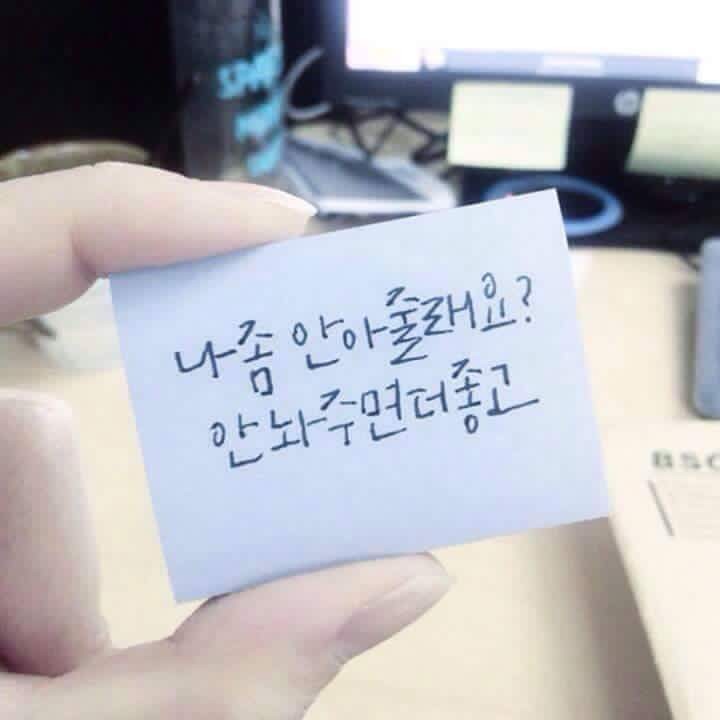 나좀 안아줄래요?
안놔주면더좋고
BSC